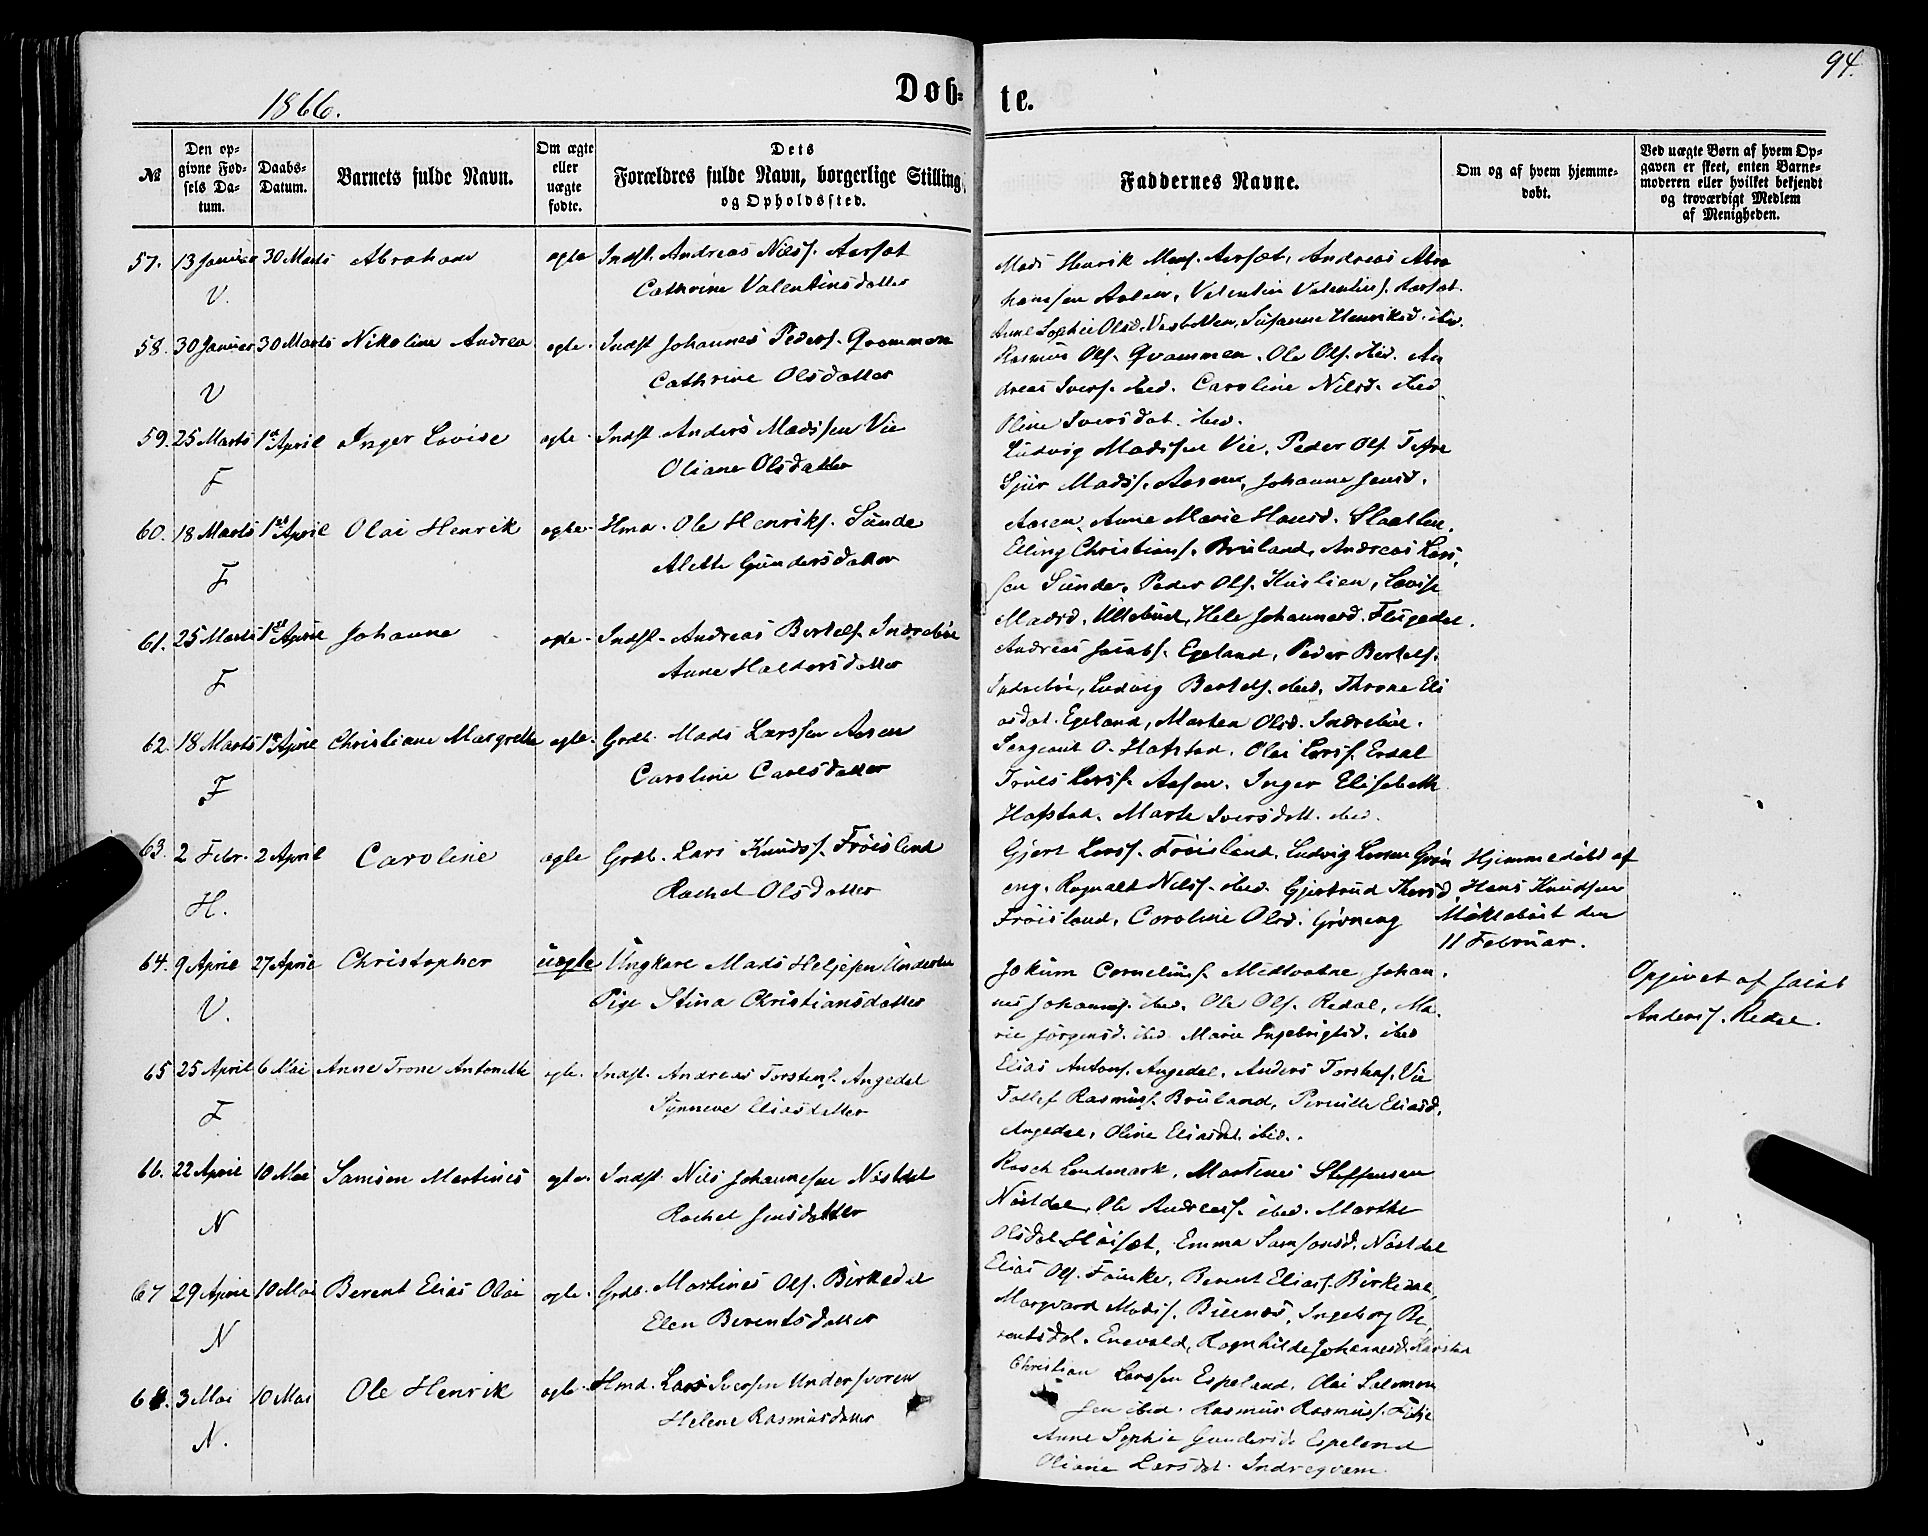 94.
1866.
Døb-
te.
№
Den op-
givne Fød-
sels Da-
tum.
Daabs-
Datum.
Barnets fulde Navn.
Om ægte
eller
uægte
fødte.
Dets
Forældres fulde Navn, borgerlige Stilling,
og Opholdssted.
Faddernes Navne.
Om og af hvem hjemme-
døbt.
Ved uægte Børn af hvem Op-
gaven er skeet, enten Barne-
moderen eller hvilket bekjendt
og troværdigt Medlem
af Menigheden.
57. 13 Januar 30 Marts Abraham ægte Indst. Andreas Nilss. Aarsæt
V. Cathrine Valentinsdatter
Mads Henrik Mons. Aarsæt, Andreas Abra
hamsen Aasen, Valentin Valentins. Aarsæt.
Anne Sophie Olsd. Susanne Henriksd. ibid.
58. 30 Januar 30 Marts Nikoline Andrea ægte. Indst Johannes Peders. Qvammen
V Cathrine Olsdatter
Rasmus Ols. Qvammen, Ole Ols. ibid. An
dreas Ivers. ibid. Caroline Nilsd. ibid
Oline Iversdat. ibid.
59. 25 Marts 1st April Inger Lovise ægte. Indst Anders Madssen Vie
F Oliane Olsdatter
Ludvig Madssen Vie, Peder Ols. Tefre
Sjur Madss. Aasen, Johanne Jensd.
Aasen, Anne Marie Hansd.
60. 18 Marts 1st April Olai Henrik ægte. Hmd. Ole Henriks. Sunde
F Alette Gundersdatter
Elling Christians. Bruland, Andreas Lars
sen Sunde, Peder Ols. Lovise
Madsd. Ullebust, Hele Johannesd. Flugedal.
61. 25 Marts 1st April Johanne ægte. Indst. Andreas Bertels. Indrebøe
F Anne Haldorsdatter
Andreas Jacobs. Egeland, Peder Bertels.
Indrebøe, Ludvig Bertels. ibid, Throne Eli
asdat. Egeland, Marthea Olsd. Indrebøe.
62. 18 Marts 1st April Christiane Margrethe ægte. Grdb. Mads Larssen Aasen
F Caroline Carlsdatter
Sergeant O. Hafstad, Olai Larss. Erdal
Truls Larss. Aasen, Inger Elisabeth
Hafstad. Marte Iversdatt. ibid.
63. 2 Febr. 2 April Caroline ægte Grdb. Lars Knuds. Frøisland
H. Rachel Olsdatter
Gjert Larss. Frøisland, Ludvig Larsen Grøn
eng, Ragnald Nils. ibid. Gjertrud Thorsd.
Frøisland, Caroline Olsd. Grøneng
Hjemmedøbt af
Hans Knudsen
Moklebust den
11 Februar.
64. 9 April 27 April Christopher uægte Ungkarl Mads Heljesen
V. Pige Stina Christiansdatter
Jokum Cornelius. Midtvatne, Johan-
nes Johanness. ibid. Ole Ols. Redal, Ma-
rie Jørgensd. ibid. Marie Ingebrigtsd. ibid
Opgivet af Jacob
Anders. Redal.
65 25 April 6 Mai Anne Trone Antonette ægte. Indst. Andreas Torstens. Angedal
F Synneve Eliasdatter
Elias Antons. Angedal, Anders Torstens. Vie
Tollef Rasmuss. Bruland, Pernille Eliasd.
Angedal, Oline Eliasdat. ibid.
66. 22 April 10 Mai Samson Martines ægte. Indst. Nils Johannesen Nøstdal
N Rachel Jensdatter
Rasch Landmark, Martines Steffensen
Nøstdal, Ole Andreass. ibid. Marthe
Olsdat. Høisæt, Emma Samsonsd. Nøstdal
67 29 April 10 Mai Berent Elias Olai ægte. Grdb. Martines Ols. Birkedal
N Elen Berentsdatter
Elias Ols. Funke, Berent Elias. Birkedal,
Margvard Mads. Ingeborg Be-
rentsdat. Enevald, Ragnhilde Johannesd. Karstad
68. 3 Mai 10 Mai Ole Henrik ægte. Hmd. Lars Iversen Undersvoren
N. Helene Rasmusdatter
Christian Larssen Espeland, Olai Salomon
sen ibid. Rasmus Rasmuss.
Anne Sophie Gundersd. Espeland
Oliane Larsdat. Indreqvam